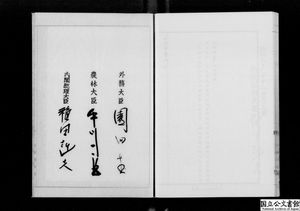 外務大臣 園田直
農林大臣 中川一郎
内閣総理大臣 福田赳夫
国立公文書館
National Archives of Japan